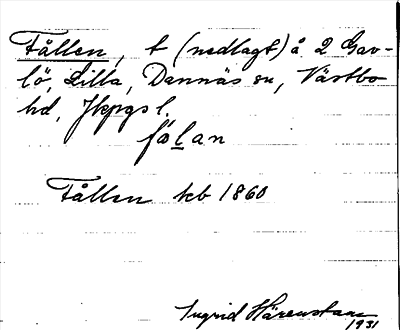 Fållen, t (nedlagt) å 2 Gav-
lö, Lilla, Dannäs sn, Västbo
hd, Jkpgs l.
fólan
Fållen kb 1860
Ingrid Härenstam
1931